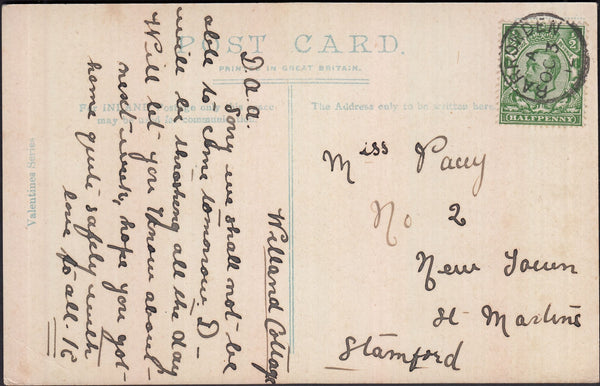 POST CARD.
PRINTED IN GREAT BRITAIN.
For INLAND Postage only this space
may be used for communication.
The Address only to be written here.
Valentines Series
HALFPENNY
Willand Cottage
D. a. a.
Sorry we shall not be
able to come tomorrow D-
will be thrashing all the day
Will let you know about
next week, hope you got
home quite safely much
love to all. K
Miss Pacey
No 2
New Town
St Martins
Stamford